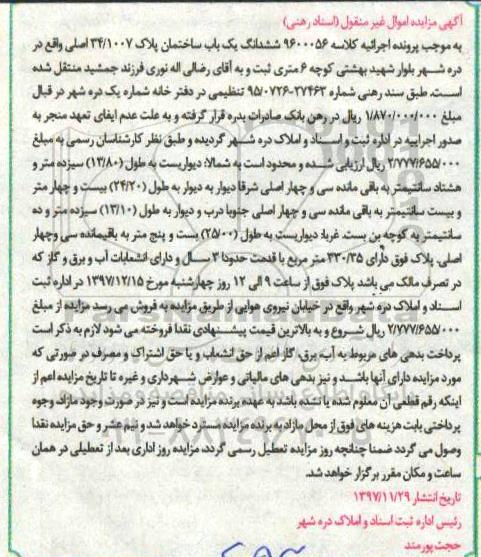 آگهی مزایده اموال غیر منقول (اسناد رهنی)
به موجب پرونده اجرائیه کلاسه ۹۶۰۰۰۵۶ ششدانگ یک باب ساختمان پلاک ۳۴/۱۰۰۷ اصلی واقع در
دره شهر بلوار شهید بهشتی کوچه ۶ متری ثبت و به آقای رضالی اله نوری فرزند جمشید منتقل شده
است. طبق سند رهنی شماره ۲۷۴۶۳-۹۵/۰۷۲۶ تنظیمی در دفتر خانه شماره یک دره شهر در قبال
مبلغ ۱/۸۷۰/۰۰۰/۰۰۰ ریال در رهن بانک صادرات بدره قرار گرفته و به علت عدم ایفای تعهد منجر به
صدور اجراییه در اداره ثبت و اسناد و املاک دره شهر گردیده و طبق نظر کارشناسان رسمی به مبلغ
۲/۷۷۷/۶۵۵/۰۰۰ ریال ارزیابی شده و محدود است به شمالا: دیواریست به طول (۱۳/۸۰) سیزده متر و
هشتاد سانتیمتر به باقی مانده سی و چهار اصلی شرقا دیوار به دیوار به طول (۲۴/۲۰) بیست و چهار متر
و بیست سانتیمتر به باقی مانده سی و چهار اصلی جنوبا درب و دیوار به طول (۱۳/۱۰) سیزده متر و ده
سانتیمتر به کوچه بن بست. غربا: دیواریست به طول (۲۵/۰۰) بست و پنج متر به باقیمانده سی وچهار
اصلی. پلاک فوق دارای ۳۳۰/۳۵ متر مربع با قدمت حدودا ۳ سال و دارای انشعابات آب و برق و گاز که
در تصرف مالک می باشد پلاک فوق از ساعت ۹ الی ۱۲ روز چهارشنبه مورخ ۱۳۹۷/۱۲/۱۵ در اداره ثبت
اسناد و املاک دره شهر واقع در خیابان نیروی هوایی از طریق مزایده به فروش می رسد مزایده از مبلغ
۲/۷۷۷/۶۵۵/۰۰۰ ریال شروع و به بالاترین قیمت پیشنهادی نقدا فروخته می شود لازم به ذکر است
پرداخت بدهی های مربوط به آب، برق، گاز اعم از حق انشعاب و یا حق اشتراک و مصرف در صورتی که
مورد مزایده دارای آنها باشد و نیز بدهی های مالیاتی و عوارض شهرداری و غیره تا تاریخ مزایده اعم از
اینکه رقم قطعی آن معلوم شده یا نشده باشد به عهده برنده مزایده است و نیز در صورت وجود مازاد، وجوه
پرداختی بابت هزینه های فوق از محل مازاد به برنده مزایده مسترد خواهد شد و نیم عشر و حق مزایده نقدا
وصول می گردد ضمنا چنانچه روز مزایده تعطیل رسمی گردد، مزایده روز اداری بعد از تعطیلی در همان
ساعت و مکان مقرر برگزار خواهد شد.
تاریخ انتشار ۱۳۹۷/۱۱/۲۹
رئیس اداره ثبت اسناد و املاک دره شهر
حجت پورمند